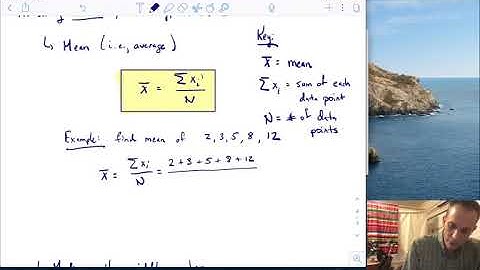 ↳ Mean (i.e., average)
x̄ = Σxᵢ / N
Key:
x̄ = mean
Σxᵢ = sum of each
data point
N = # of data
points
Example: find mean of 2, 3, 5, 8, 12
x̄ = Σxᵢ / N = 2 + 3 + 5 + 8 + 12